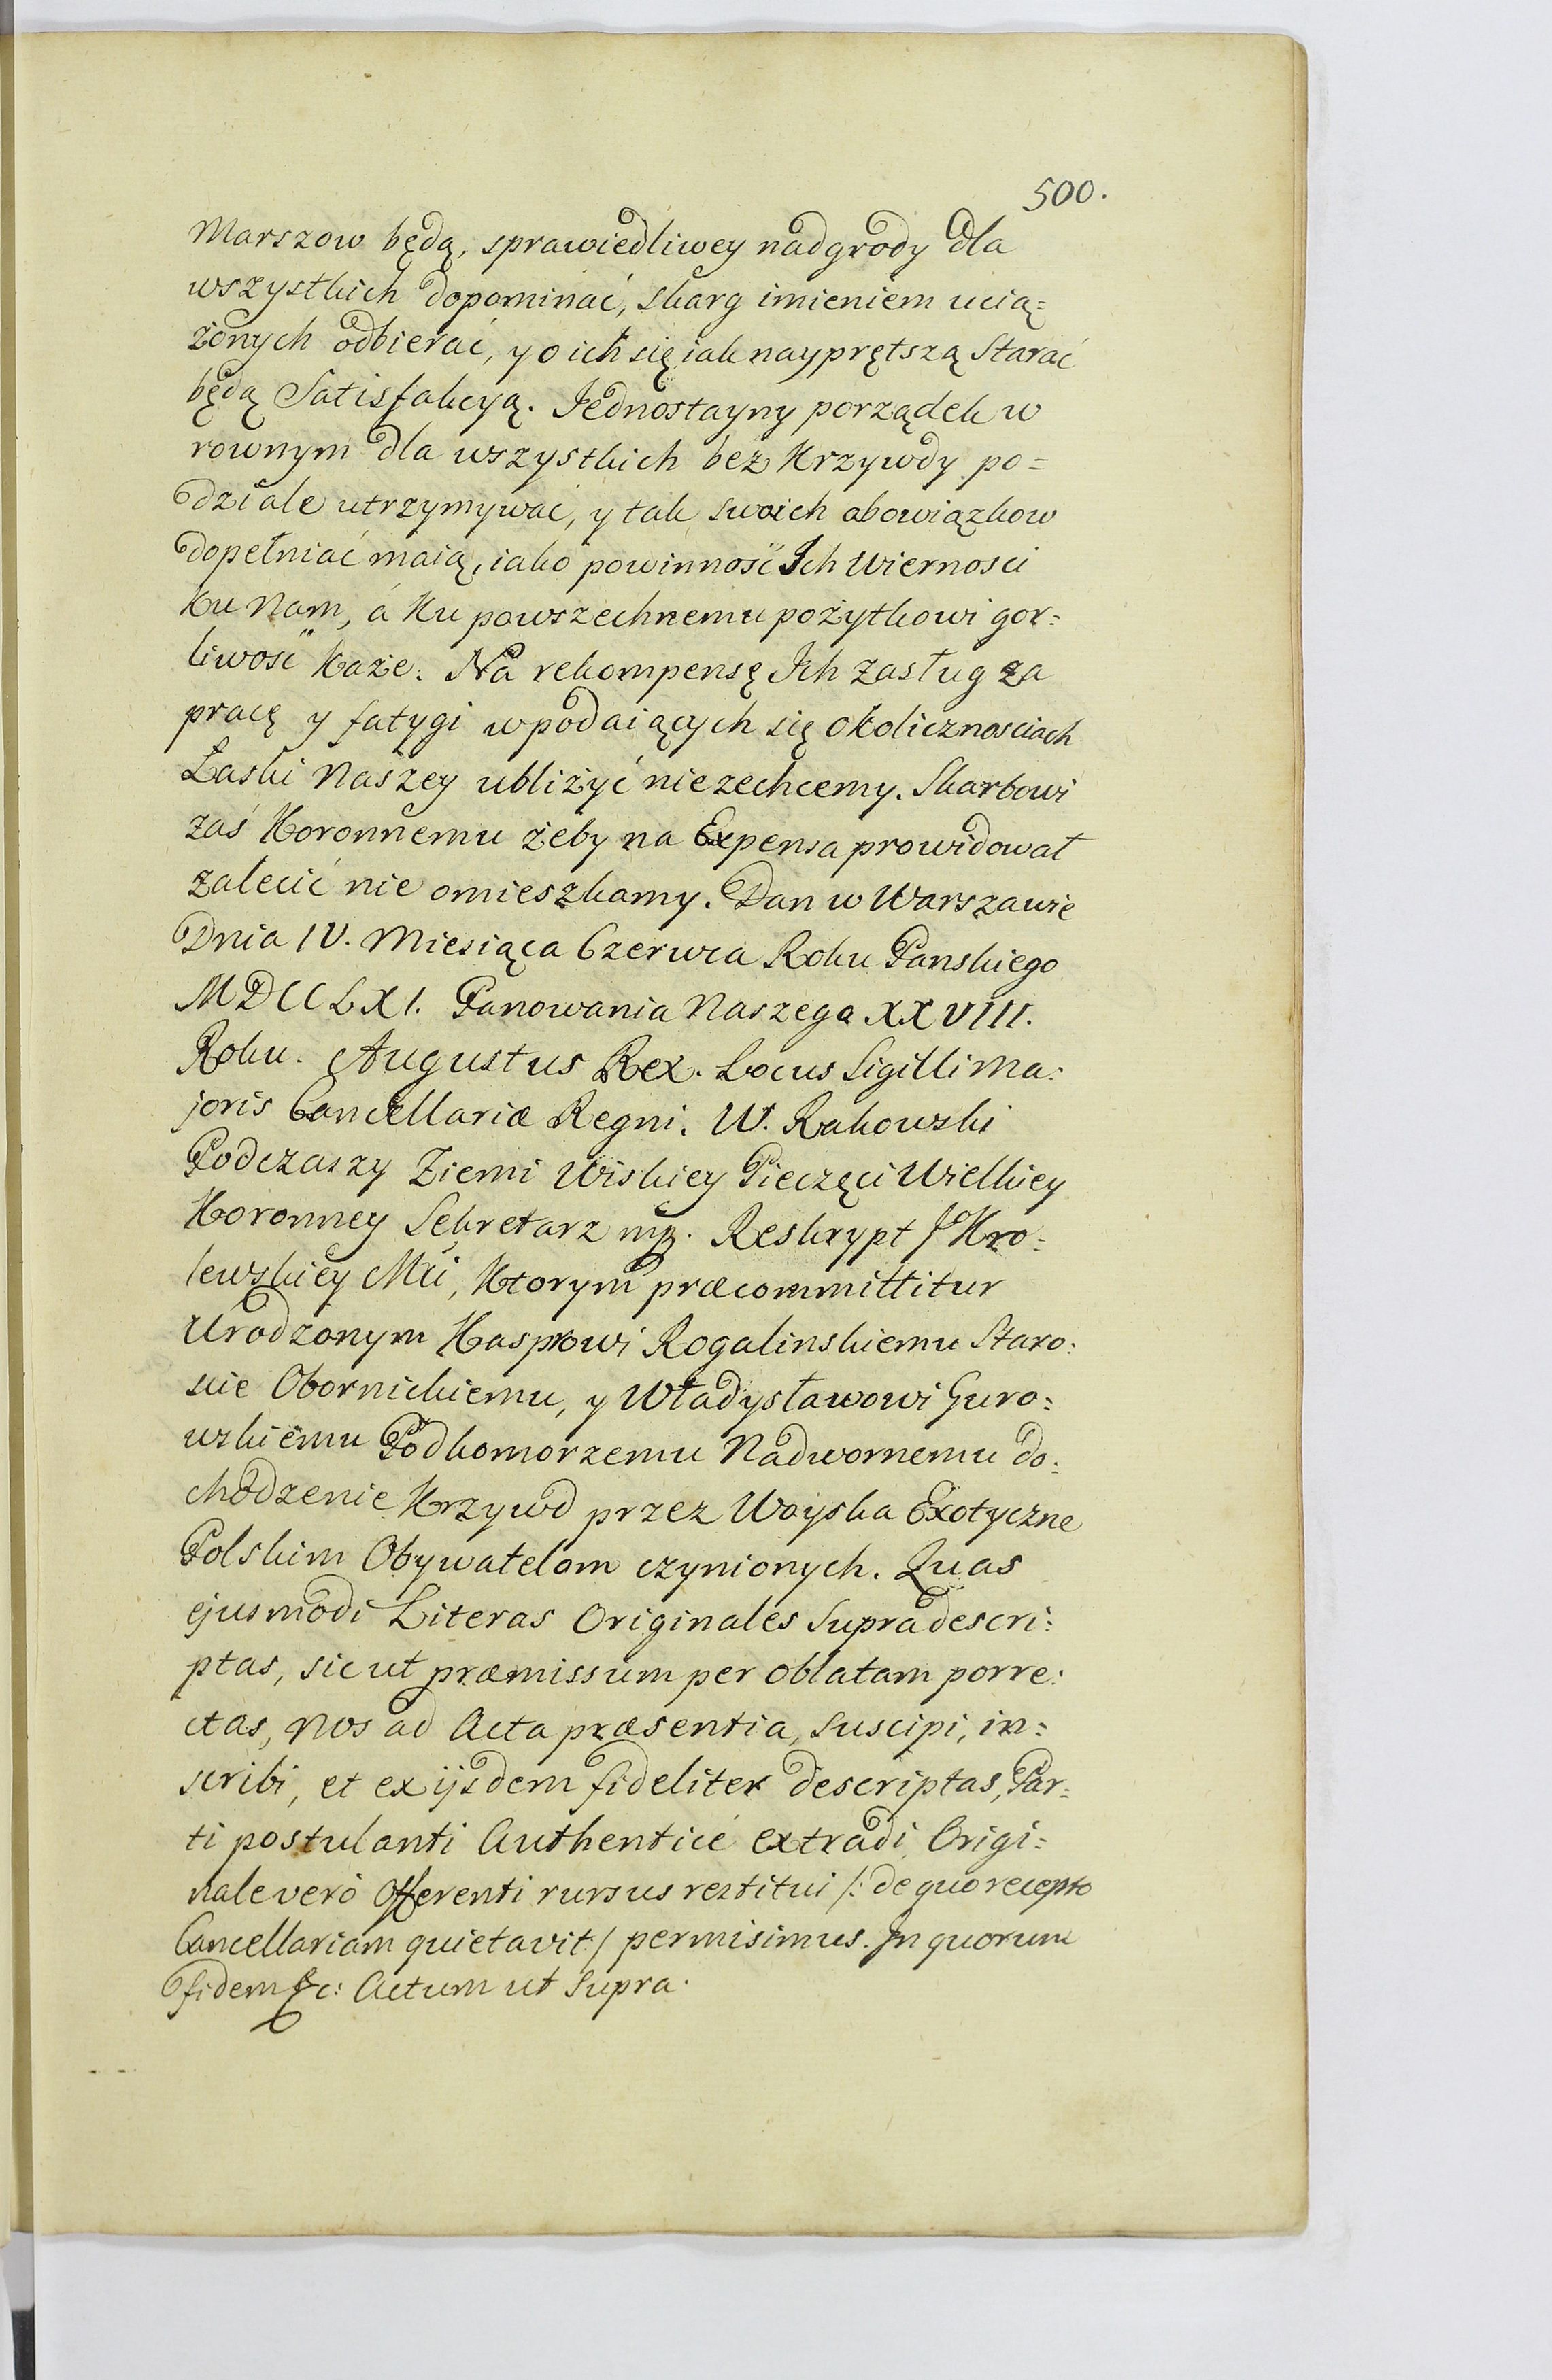 500.
Marszow będą, sprawiedliwey nadgrody dla
wszystkich dopominać, skarg imieniem ucią=
żonych odbierać, y o ich się iak nayprętszą starać
będą Satisfakcyą. Jednostayny porządek w
rownym dla wszystkich bez Krzywdy po=
dziale utrzymywać, y tak swoich obowiązkow
dopełniać maią, iako powinność Ich Wiernosci
ku Nam, á Ku powszechnemu pożytkowi gor=
liwość każe. Na rekompensę Ich zasług za
pracę y fatygi w podaiących się okolicznosciach
Łaski Naszey ubliżyć niezechcemy. Skarbowi
zaś Koronnemu żeby na Expensa prowidował
zalecić nie omieszkamy. Dan w Warszawie
Dnia IV. Miesiąca Czerwca Roku Panskiego
MDCCLXI. Panowania Naszego XXVIII.
Roku. Augustus Rex. Locus Sigilli Ma:
joris Cancellariæ Regni. W. Rakowski
Podczaszy Ziemi Wiskiey Pieczęci Wielkiey
Koronney Sekretarz mp. Reskrypt J Kro:
lewskiey Mći, Ktorym præcommittitur
Urodzonym Kasprowi Rogalinskiemu Staro:
scie Obornickiemu, y Władysławowi Guro=
wskiemu Podkomorzemu Nadwornemu do:
chodzenie Krzywd przez Woyska Exotyczne
Polskim Obywatelom czynionych. Quas
ejusmodi Literas Originales Supra descri:
ptas, sicut præmissum per oblatam porre:
ctas, Nos ad Acta præsentia, suscipi, in=
scribi, et ex ijsdem fideliter descriptas, Par=
ti postulanti Authenticè extradi Origi=
nale verò Offerenti rursus restitui /: de quo recepto
Cancellariam quietavit :/ permisimus. In quorum
fidem &c: Actum ut Supra.